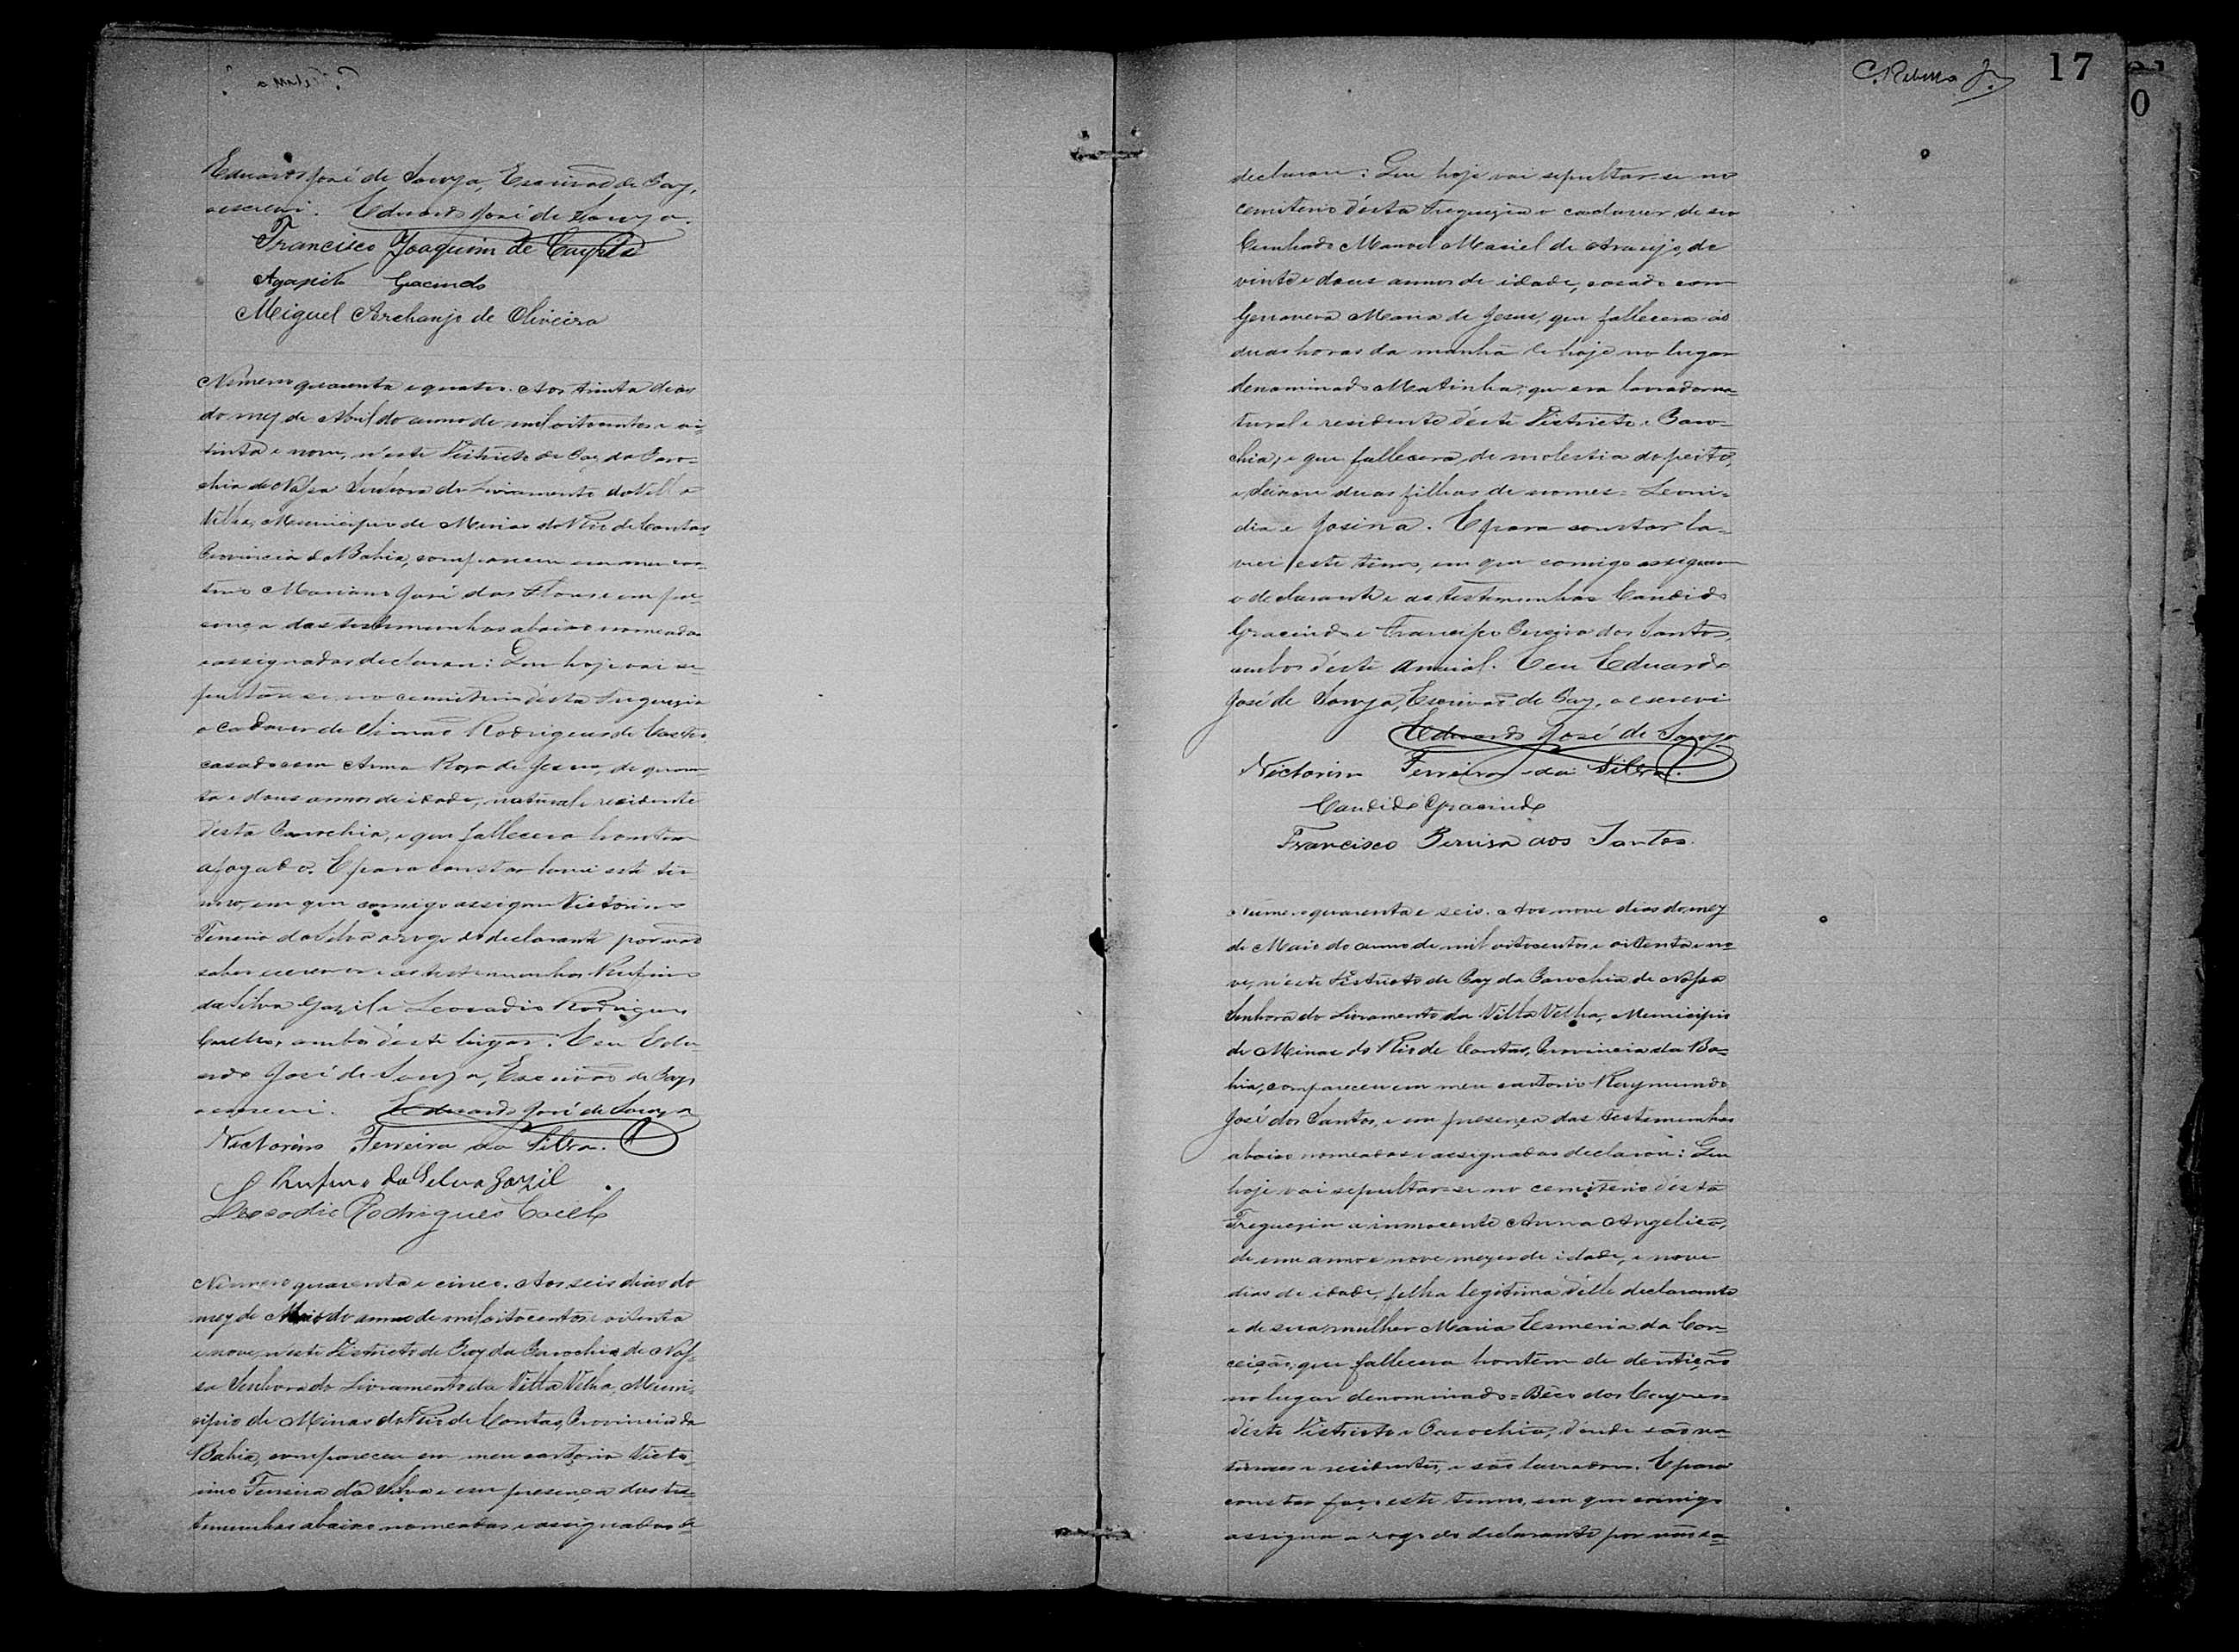 Eduardo José de Souza, Escrivão de Paz,
o escrevi. Eduardo José de Souza.
Francisco Joaquim de
Agapito Gracindo
Miguel Archanjo de Oliveira
Número quarenta e quatro. Aos trinta dias
do mez de Abril do anno de mil oitocentos e oi-
tenta e nove, n'este Districto de Paz da Paro-
chia de Nossa Senhora do Livramento da Villa
Velha, Municipio de Minas do Rio de Contas,
Provincia da Bahia, compareceu em meu car-
torio Mariano José das Flores e em pre-
sença das testemunhas abaixo nomeadas
e assignadas declarou: Que hoje vai se-
pultar-se no cemiterio d'esta Freguezia
o cadaver de Simão Rodrigues de Castro,
casado com Anna Roza de Jesus, de quaren-
ta e dous annos de idade, natural e residente
d'esta Parochia, e que fallecera hontem
afogado. E para constar lavrei este ter-
mo, em que comigo assigna Victorino
Ferreira da Silva a rogo do declarante por não
saber escrever e as testemunhas Rufino
da Silva Gazil e Leocadio Rodrigues
Coelho, ambos d'este lugar. E eu Edu-
ardo José de Souza, Escrivão de Paz,
o escrevi. Eduardo José de Souza
Victorino Ferreira da Silva.
Rufino da Silva Gazil
Leocadio Rodrigues Coelho
Número quarenta e cinco. Aos seis dias do
mez de Maio do anno de mil oitocentos e oitenta
e nove, n'este Districto de Paz da Parochia de Nos-
sa Senhora do Livramento da Villa Velha, Muni-
cipio de Minas do Rio de Contas, Provincia da
Bahia, compareceu em meu cartorio Victo-
rino Ferreira da Silva e em presença das tes-
temunhas abaixo nomeadas e assignadas
C. Rebello Jr. 17
0
declarou: Que hoje vai sepultar-se no
cemiterio d'esta Freguezia o cadaver de seo
Cunhado Manoel Maciel de Araujo, de
vinte e dous annos de idade, casado com
Genoveva Maria de Jesus, que fallecera ás
duas horas da manhã de hoje no lugar
denominado Matinha; que era lavrador na-
tural e residente d'este Districto e Paro-
chia, e que fallecera de molestia do peito,
e deixou duas filhas de nomes = Leoni-
dia e Josina. E para constar la-
vrei este termo, em que comigo assignam
o declarante e as testemunhas Candido
Gracindo e Francisco Pereira dos Santos,
ambos d'este Arraial. E eu Eduardo
José de Souza, Escrivão de Paz, o escrevi
Eduardo José de Souza
Victorino Ferreira da Silva.
Candido Gracindo
Francisco Pereira dos Santos.
Número quarenta e seis. Aos nove dias do mez
de Maio do anno de mil oitocentos e oitenta e no-
ve, n'este Districto de Paz da Parochia de Nossa
Senhora do Livramento da Villa Velha, Municipio
de Minas do Rio de Contas, Provincia da Ba-
hia, compareceu em meu cartorio Raymundo
José dos Santos, e em presença das testemunhas
abaixo nomeadas e assignadas declarou: Que
hoje vai sepultar-se no cemiterio d'esta
Freguezia a innocente Anna Angelica,
de um anno e nove mezes de idade, e nove
dias de idade, filha legitima d'elle declarante
e de sua mulher Maria Esmeria da Con-
ceição, que fallecera hontem de dentição
no lugar denominado = Bêco dos
d'este Districto e Parochia, d'onde são na-
turaes e residentes, e são lavradores. E para
constar faço este termo, em que comigo
assigna a rogo do declarante por não sa-